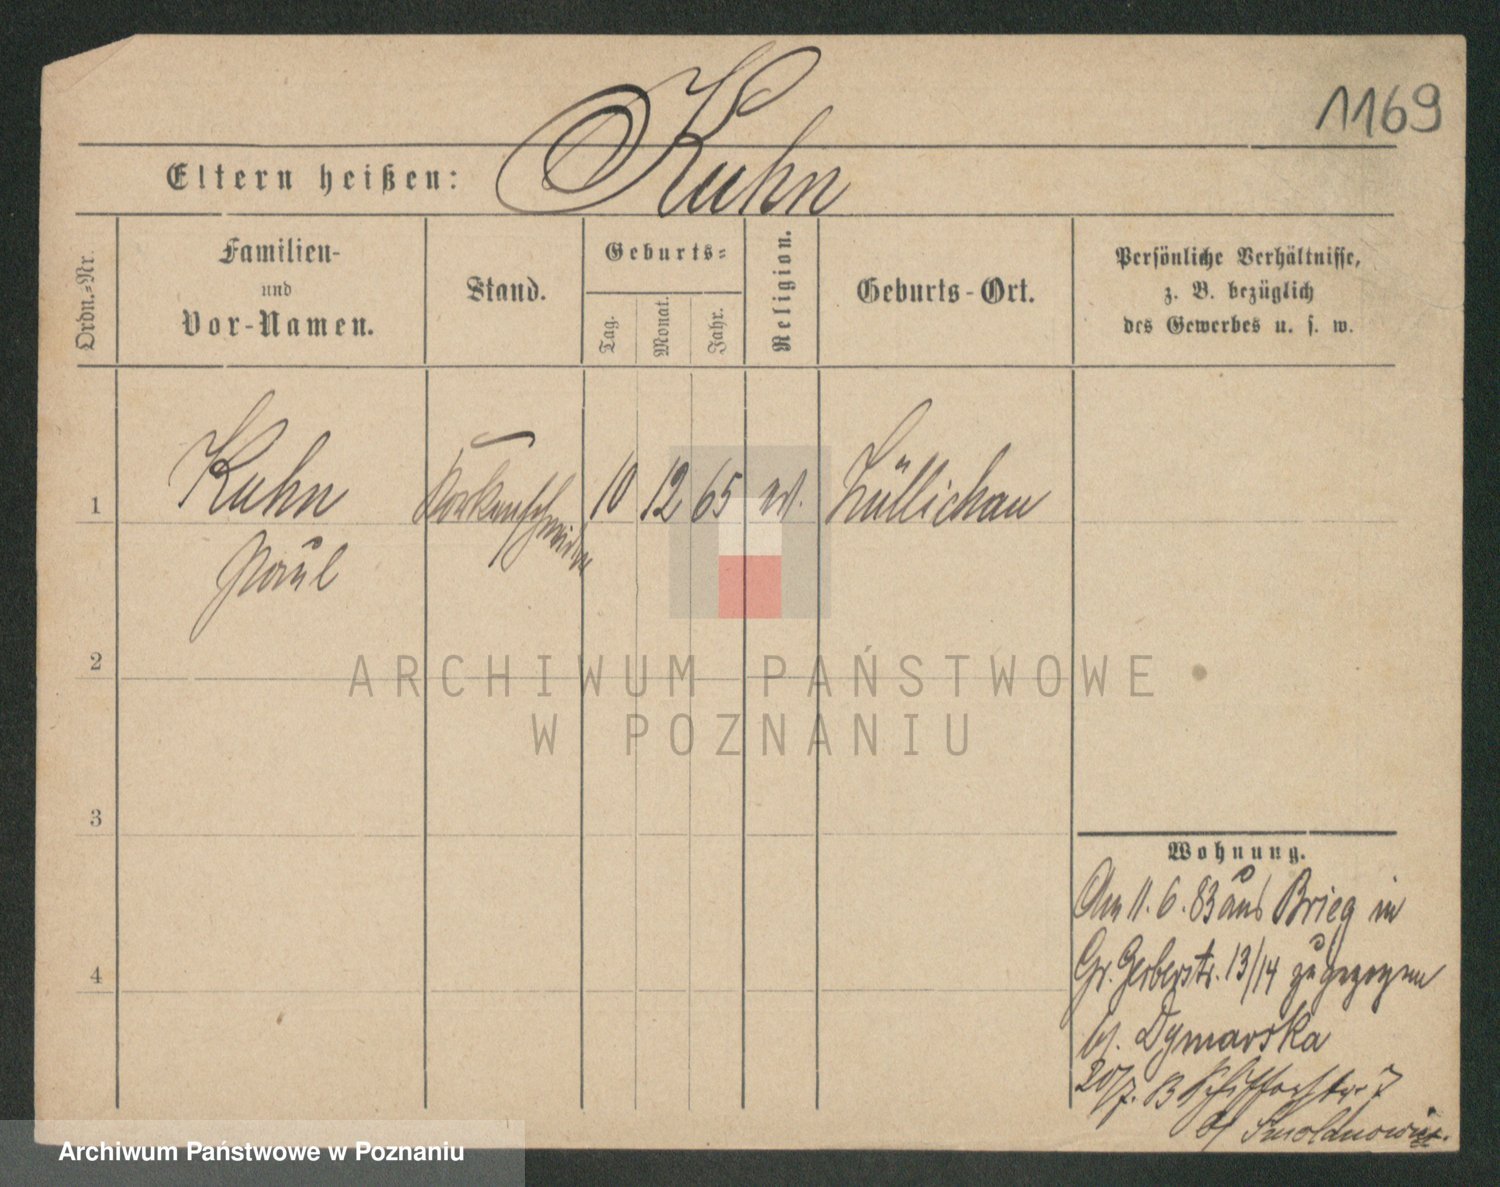 1169
Kuhn
Eltern heißen:
Ordn.-Nr.
Familien-
und
Vor-Namen.
Stand.
Geburts-
Tag.
Monat.
Jahr.
Religion.
Geburts-Ort.
Persönliche Verhältnisse,
z. B. bezüglich
des Gewerbes u. s. w.
1
Kuhn
Paul
Korkenschneider
10
12
65
ev.
Züllichau
2
3
4
Wohnung.
Am 11.6.83 aus Brieg in
Gr. Gerberstr. 13/14 zugezogen
b/. Dymarska
20/7. 83 Schifferstr. 7
b/ Smolanowicz.
ARCHIWUM PAŃSTWOWE
W POZNANIU
Archiwum Państwowe w Poznaniu